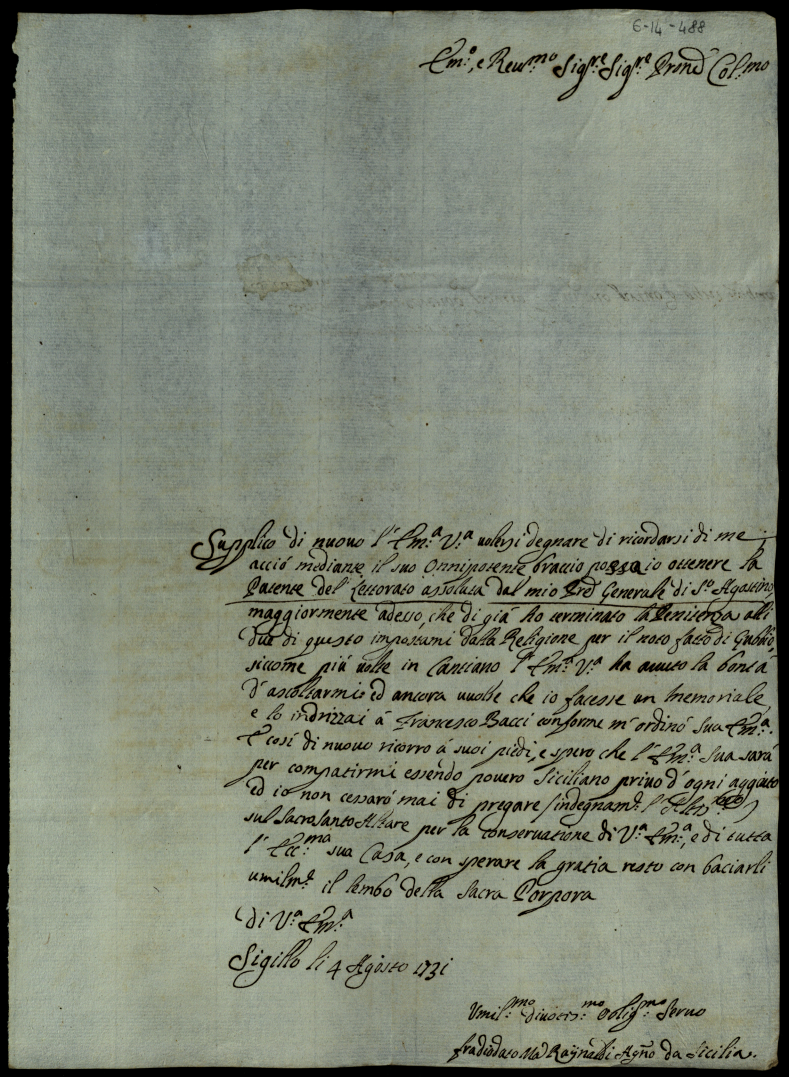 6-14-488
Em:º, e Reu:mo Sig:re Sig:re Prone Col:mo
Supplico di nuovo l'Em:a V:a volersi degnare di ricordarsi di me
acciò mediante il suo Onnipotente braccio possa io ottenere la
Patente del Lettorato assoluta dal mio Pred Generale di S:o Agostino,
maggiormente adesso, che di già ho terminato la Penitenza alli
due di questo impostami dalla Religione per il noto fatto di Gubbio,
siccome più volte in Cantiano l'Em:a V:a ha avuto la bontà
d'ascoltarmi ed ancora vuolse che io facesse un Memoriale,
e lo indrizzai à Francesco Bacci conforme m'ordinò Sua Em:a.
E così di nuovo ricorro à suoi piedi, e spero che l'Em:a Sua sarà
per compatirmi essendo povero Siciliano privo d'ogni aggiuto
ed io non cessarò mai di pregare (indegnam:te l'
sul Sacrosanto Altare per la conservatione di V:a Em:a, e di tutta
l'Ecc:ma sua Casa, e con sperare la gratia resto con baciarli
umilm:te il lembo della Sacra Porpora
di V:a Em:a
Sigillo li 4 Agosto 1731
Vmil:mo divotis:mo oblig:mo Servo
fra diodato Ma Raynaldi Agno da Sicilia.